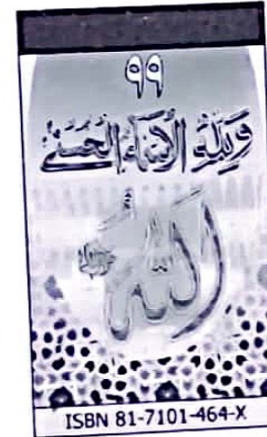 ٩٩
وَلِلَّهِ الْأَسْمَاءُ الْحُسْنَىٰ
الله
ISBN 81-7101-464-X